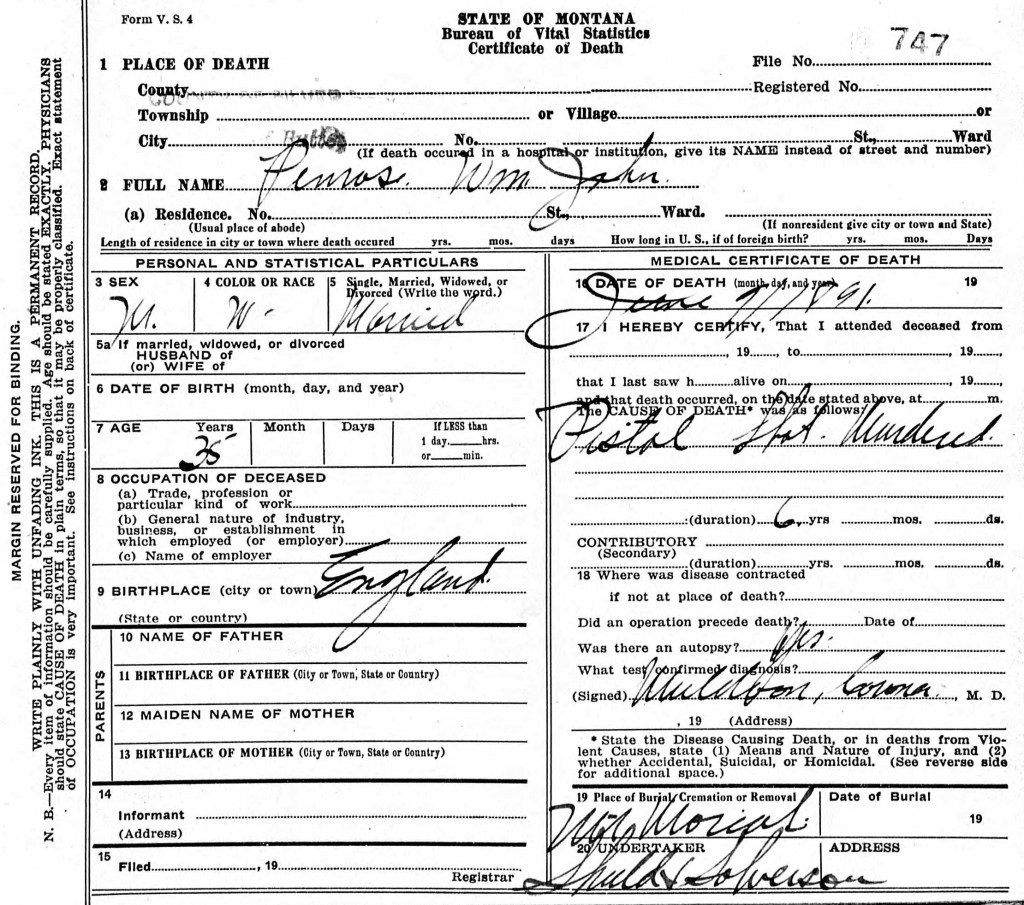 Form V. S. 4
STATE OF MONTANA
Bureau of Vital Statistics
Certificate of Death
747
File No.
1 PLACE OF DEATH
County
Registered No.
Township or Village or
City Butte No. St., Ward
(If death occured in a hospital or institution, give its NAME instead of street and number)
2 FULL NAME Penrose Wm. John.
(a) Residence. No. St., Ward.
(Usual place of abode) (If nonresident give city or town and State)
Length of residence in city or town where death occured yrs. mos. days How long in U. S., if of foreign birth? yrs. mos. Days
PERSONAL AND STATISTICAL PARTICULARS
3 SEX
M.
4 COLOR OR RACE
W.
5 Single, Married, Widowed, or Divorced (Write the word.)
Married
5a If married, widowed, or divorced
HUSBAND of
(or) WIFE of
6 DATE OF BIRTH (month, day, and year)
7 AGE Years Month Days If LESS than
1 day. hrs.
or min.
35
8 OCCUPATION OF DECEASED
(a) Trade, profession or
particular kind of work
(b) General nature of industry,
business, or establishment in
which employed (or employer)
(c) Name of employer
9 BIRTHPLACE (city or town) England.
(State or country)
PARENTS
10 NAME OF FATHER
11 BIRTHPLACE OF FATHER (City or Town, State or Country)
12 MAIDEN NAME OF MOTHER
13 BIRTHPLACE OF MOTHER (City or Town, State or Country)
14
Informant
(Address)
15
Filed , 19
Registrar
MEDICAL CERTIFICATE OF DEATH
16 DATE OF DEATH (month, day, and year) 19
June 9/1891.
17 I HEREBY CERTIFY, That I attended deceased from
, 19 , to , 19 ,
that I last saw h alive on , 19 ,
and that death occurred, on the date stated above, at m.
The CAUSE OF DEATH* was as follows:
Pistol Shot. Murdered.
(duration) 6. yrs mos. ds.
CONTRIBUTORY
(Secondary)
(duration) yrs. mos. ds.
18 Where was disease contracted
if not at place of death?
Did an operation precede death? Date of
Was there an autopsy? Yes.
What test confirmed diagnosis?
(Signed) Coroner, M. D.
, 19 (Address)
* State the Disease Causing Death, or in deaths from Violent Causes, state (1) Means and Nature of Injury, and (2) whether Accidental, Suicidal, or Homicidal. (See reverse side for additional space.)
19 Place of Burial, Cremation or Removal
Mt. Moriah.
Date of Burial
19
20 UNDERTAKER
ADDRESS
MARGIN RESERVED FOR BINDING.
WRITE PLAINLY WITH UNFADING INK. THIS IS A PERMANENT RECORD.
N. B.—Every item of information should be carefully supplied. Age should be stated EXACTLY. PHYSICIANS
should state CAUSE OF DEATH in plain terms, so that it may be properly classified. Exact statement
of OCCUPATION is very important. See instructions on back of certificate.